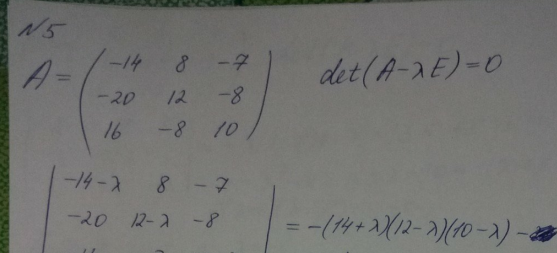 N5
A = ( -14 8 -7
-20 12 -8
16 -8 10 ) det(A-λE)=0
| -14-λ 8 -7
-20 12-λ -8 | = -(14+λ)(12-λ)(10-λ) -